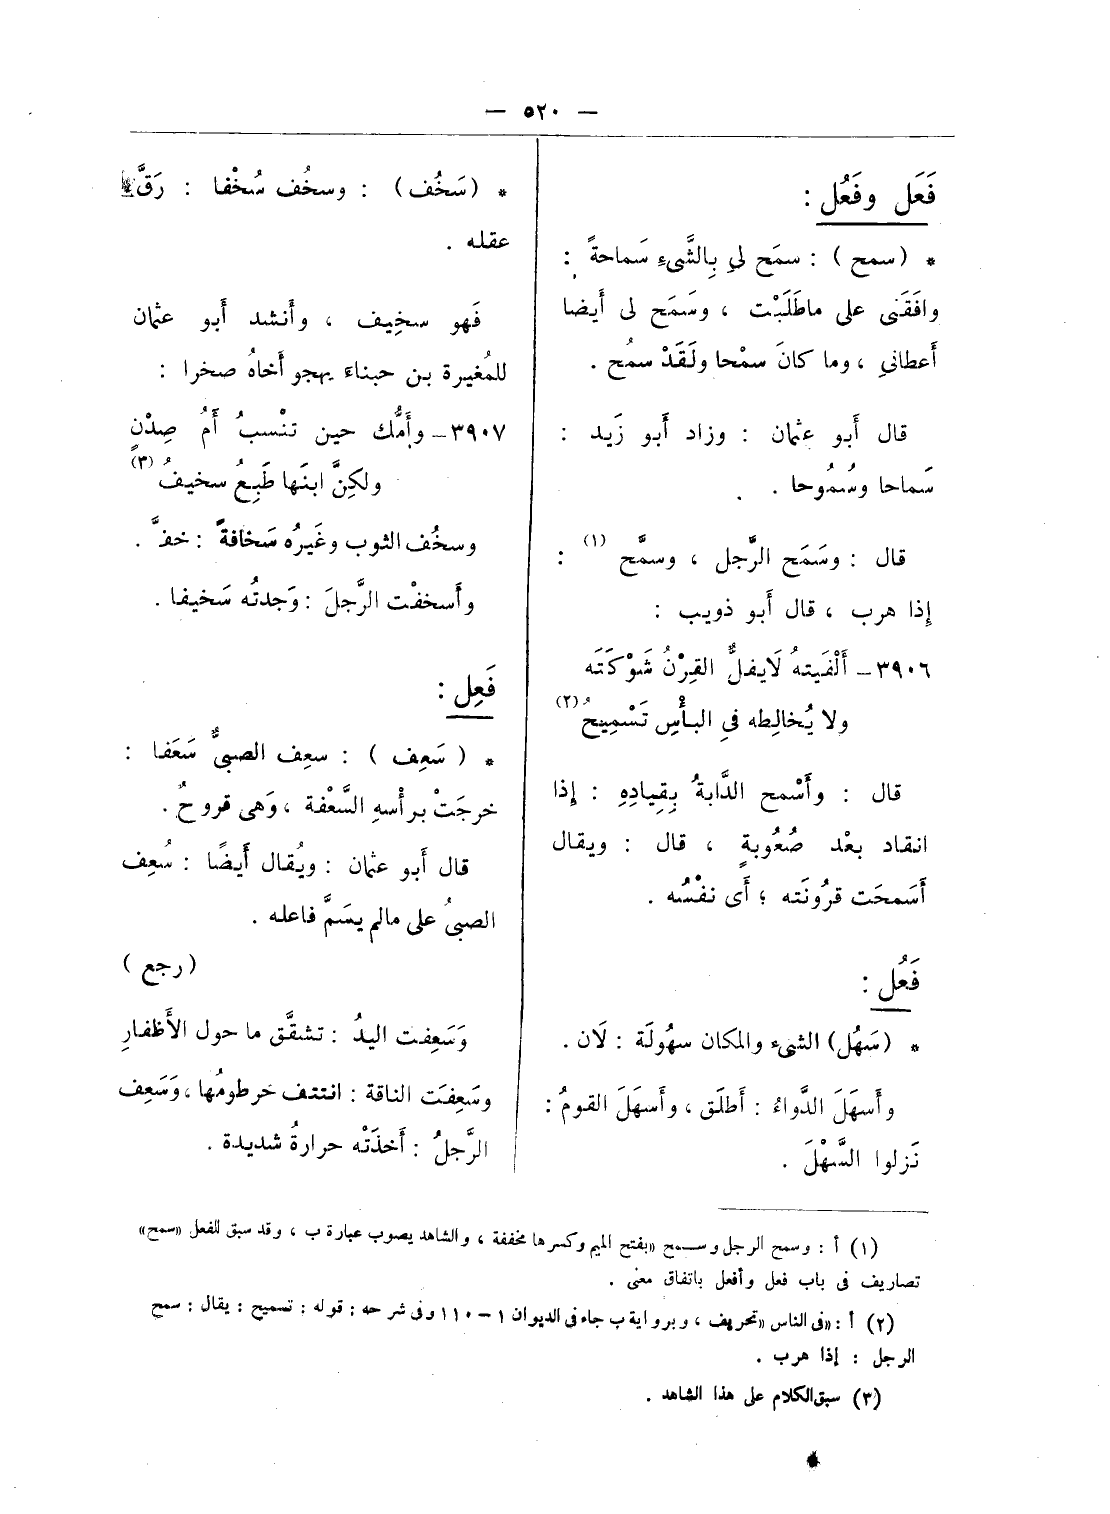 — ٥٢٠ —
فَعَل وفَعُل :
* ( سمح ) : سمَح لي بِالشَّيءِ سَماحةً :
وافَقَنى على ماطَلَبْت ، وسَمَح لى أَيضا
أَعطاني ، وما كانَ سمْحا ولَقَدْ سمُح .
قال أَبو عثمان : وزاد أَبو زَيد :
سَماحا وسُمُوحا .
قال : وسَمَح الرَّجل ، وسمَّح (١) :
إِذا هرب ، قال أَبو ذويب :
٣٩٠٦ – أَلْفَيتهُ لَايفلُّ القِرْنُ شَوْكَتَه
ولا يُخالِطه فيِ البأْسِ تَسْمِيحُ (٢)
قال : وأَسْمح الدَّابةُ بِقِيادِهِ : إِذا
انقاد بعْد صُعُوبةٍ ، قال : ويقال
أَسَمحَت قرُونَته ؛ أَى نفْسُه .
فَعُل :
* (سَهُل) الشىء والمكان سهُولَة : لَان .
وأَسهَلَ الدَّواءُ : أَطلَق ، وأَسهَلَ القومُ :
نَزلوا السَّهْلَ .
* (سَخُف) : وسخُف سُخْفا : رَقَّ
عقله .
فَهو سخِيف ، وأَنشد أَبو عثمان
للمُغيرة بن حبناء يهجو أَخاهُ صخرا :
٣٩٠٧ – وأُمُّك حين تنْسبُ أُمُ صِدْنٍ
ولكِنَّ ابنَها طَبِعُ سخيفُ (٣)
وسخُف الثوب وغَيرُه سَخافةً : خفَّ .
وأَسخفْت الرَّجلَ : وَجدتُه سَخيفا .
فَعِل :
* ( سَعِف ) : سعِف الصبىُّ سَعَفا :
خرجَتْ برأْسهِ السَّعْفة ، وَهى قروحٌ .
قال أَبو عثمان : ويُقال أَيضًا : سُعِف
الصبىُ على مالم يسَمَّ فاعله .
( رجع )
وَسَعِفت اليدُ : تشقَّق ما حول الأَظفارِ
وسَعِفَت الناقة : انتتف خرطومُها ، وَسَعِف
الرَّجلُ : أَخذَتْه حرارةُ شديدة .
(١) أ : وسمح الرجل وسمح «بفتح الميم وكسرها مخففة ، والشاهد يصوب عبارة ب ، وقد سبق للفعل «سمح»
تصاريف فى باب فعل وأفعل باتفاق معنى .
(٢) أ : «فى الناس «تحريف ، وبرواية ب جاء فى الديوان ١ – ١١٠ وفى شرحه : قوله : تسميح : يقال : سمح
الرجل : إذا هرب .
(٣) سبق الكلام على هذا الشاهد .